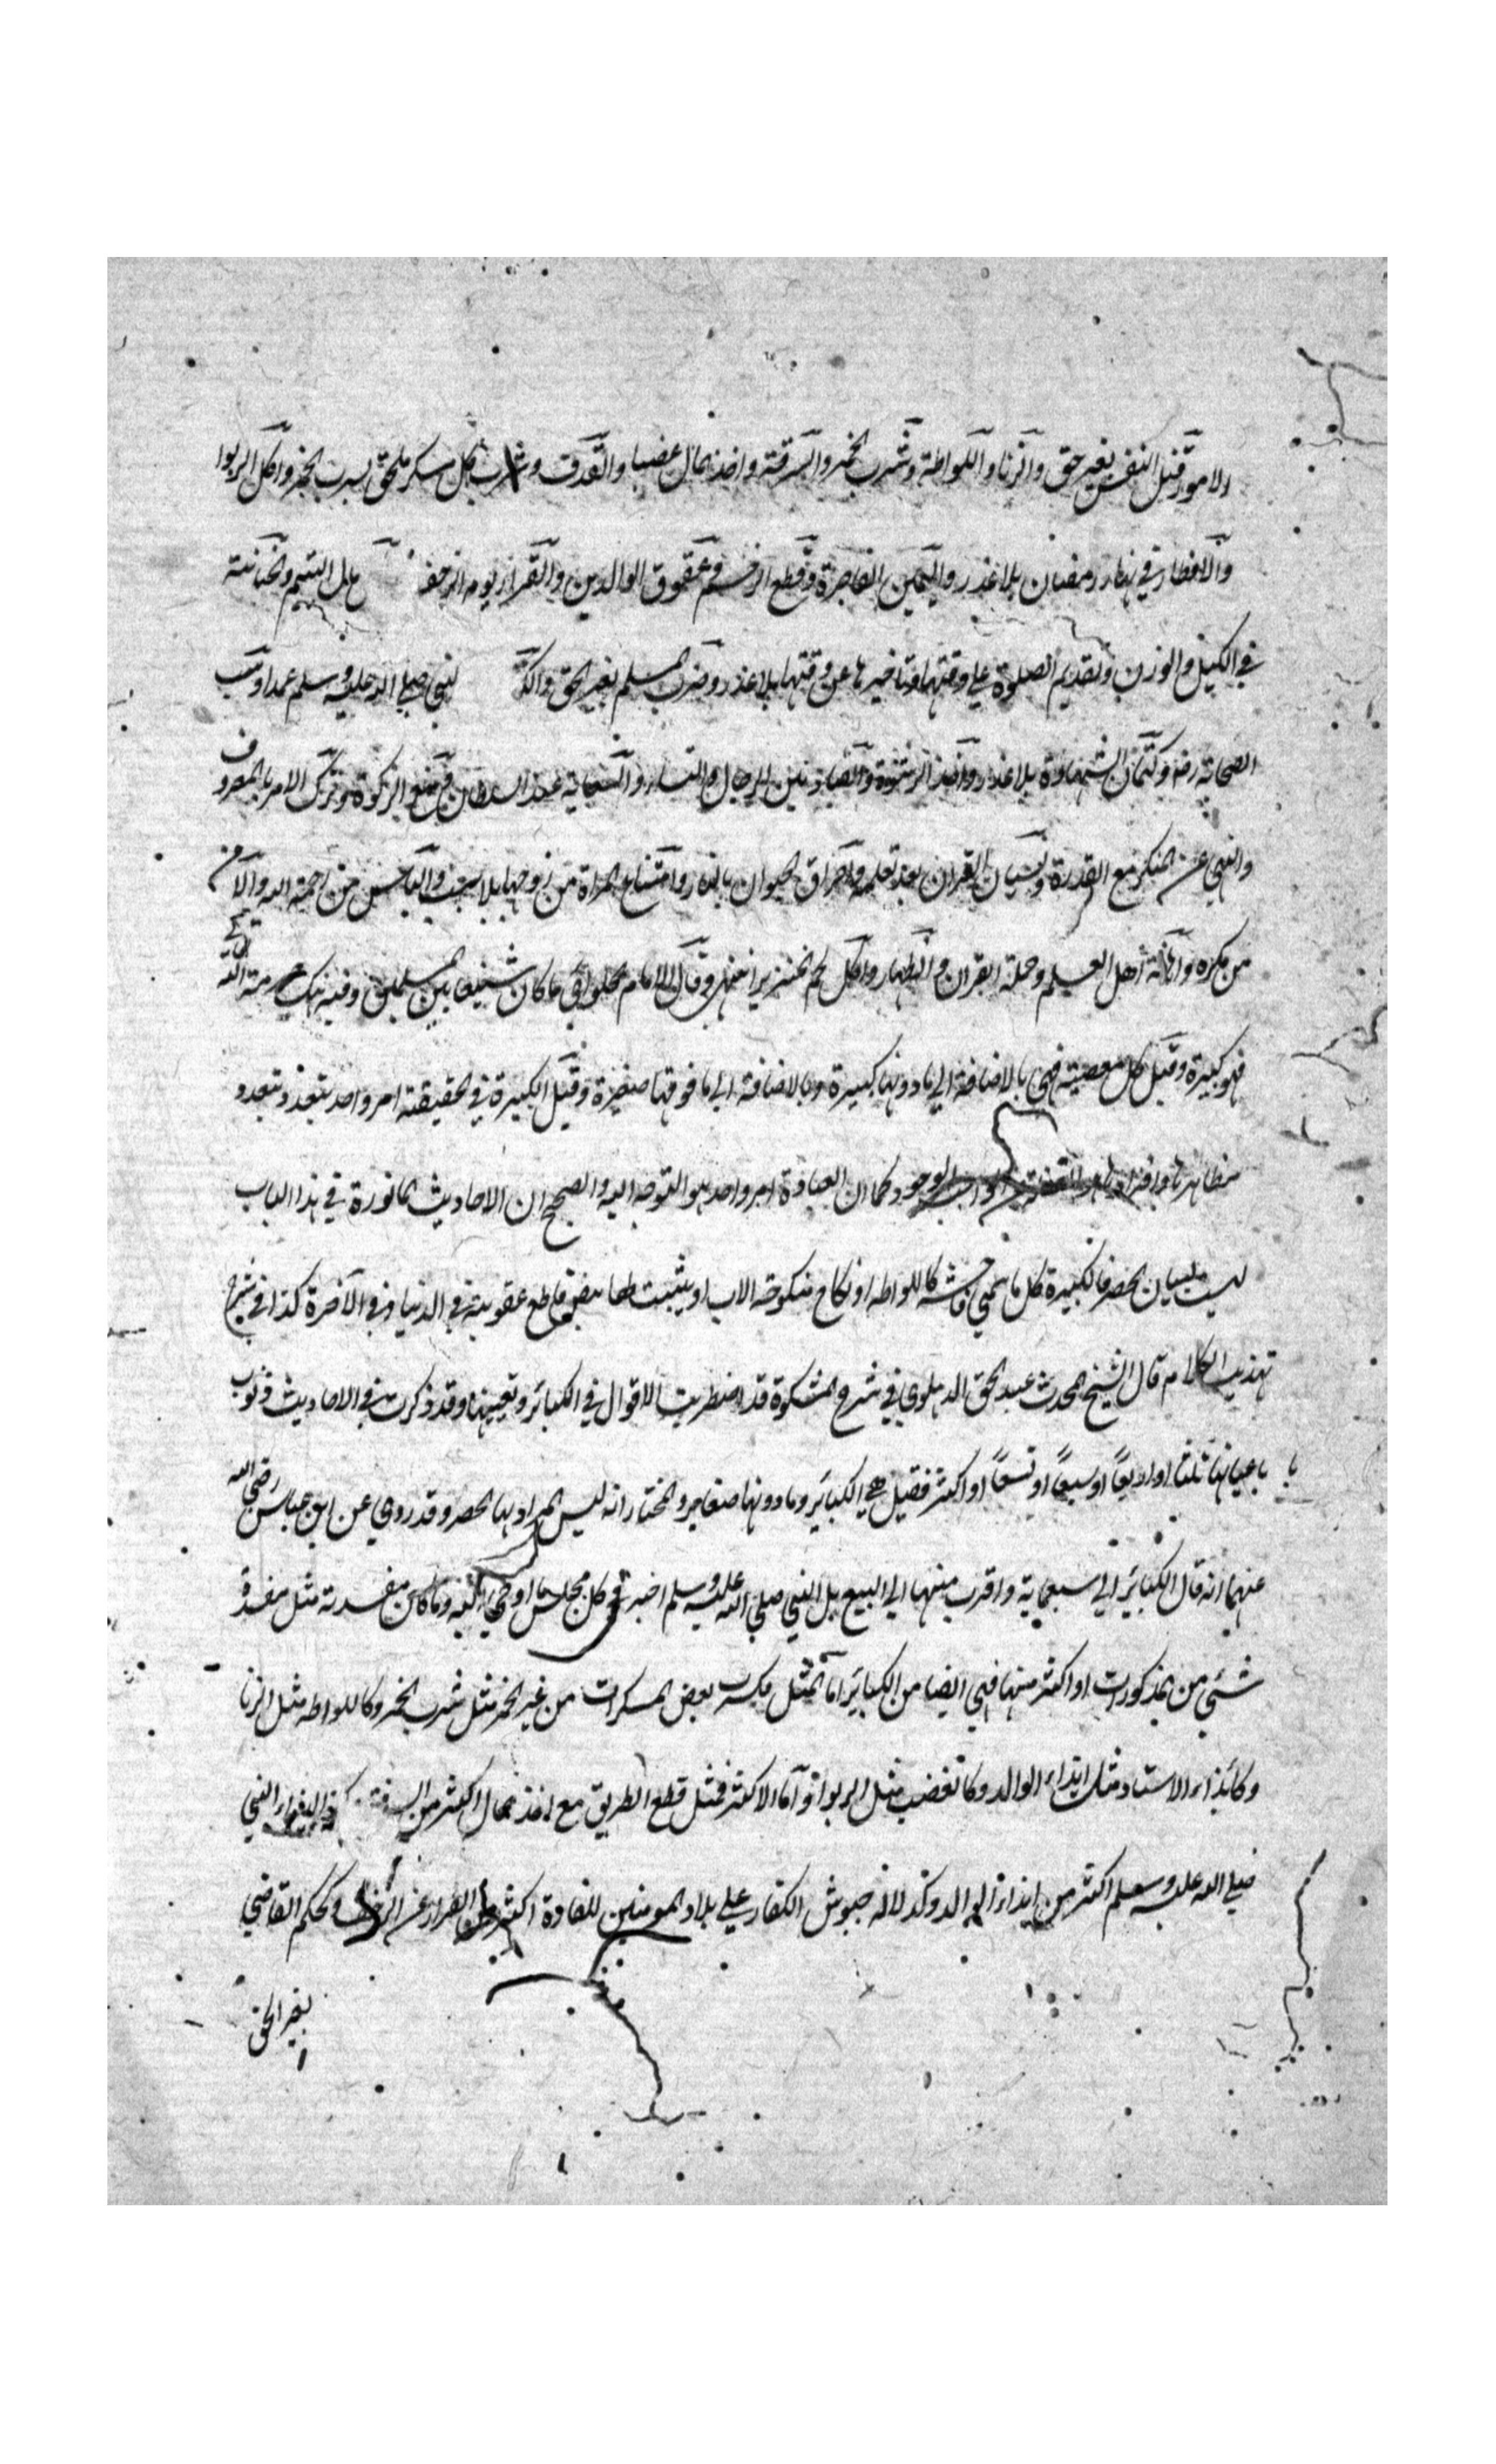 الامور قتل النفس بغير حق والزنا واللواطة وشرب الخمر والسرقة واخذ المال غصبا والقذف وشرب كل مسكر ملحق بشرب الخمر واكل الربوا
والافطار في نهار رمضان بلا عذر واليمين الفاجرة وقطع الرحم وعقوق الوالدين والفرار يوم الزحف مال اليتيم والخيانة
في الكيل والوزن وتقديم الصلوة علي وقتها وتاخيرها عن وقتها بلا عذر وضرب المسلم بغير الحق والكذ لنبي صلي الله عليه وسلم عمدا وسب
الصحابة رضه وكتمان الشهادة بلا عذر واخذ الرشوة والقيادة بين الرجال والنساء والسعاية عند السلطان ومنع الزكوة وترك الامر بالمعروف
والنهي عن المنكر مع القدرة ونسيان القران بعد تعلمه واحراق الحيوان بالنار وامتناع المراة من زوجها بلا سبب والياس من رحمة الله والامن
من مكره واهانة اهل العلم وحملة القران والظهار واكل لحم الخنزير انتهي وقال الامام الحلوائي ما كان شنيعا بين المسلمين وفيه هتك حرمة الله
فهو كبيرة وقيل كل معصية فهي بالاضافة الي ما دونها كبيرة وبالاضافة الي ما فوقها صغيرة وقيل الكبيرة في الحقيقة امر واحد يتعدد بتعدد
مظاهرها وافرادها الوجود كما ان العبادة امر واحد هو التوجه اليه والصحيح ان الاحاديث الماثورة في هذا الباب
ليست لبيان الحصر فالكبيرة كل ما سمي فاحشة كاللواطه او نكاح منكوحة الاب او يثبت لها بنص قاطع عقوبة في الدنيا وفي الآخرة كذا في شرح
تهذيب الكلام قال الشيخ المحدث عبد الحق الدهلوي في شرح المشكوة قد اضطربت الاقوال في الكبائر وتعيينها وقد ذكرت في الاحاديث ذنوب
باعيانها ثلثا او اربعاً او سبعاً او تسعاً او اكثر فقيل هي الكبائر وما دونها صغاير والمختار انه ليس المراد بها الحصر وقد روي عن ابن عباس رضي الله
عنهما انه قال الكبائر الي سبعماية واقرب منها الي السبع بل النبي صلي الله عليه وسلم اخبر في كل مجلس ما اوحي اليه وما كان مفسدته مثل مفسدة
شئي من المذكورات او اكثر منها فهي ايضا من الكبائر اما المثل فكشرب بعض المسكرات من غير الخمر مثل شرب الخمر وكاللواطه مثل الزنا
وكايذاء الاستاد مثل ايذاء الوالد وكالغصب مثل الربوا واما الاكثر فمثل قطع الطريق مع اخذ المال اكثر من السرقة ايذاء النبي
صلي الله عليه وسلم اكثر من ايذاء الوالد وكدلالة جيوش الكفار علي بلاد المومنين للغارة اكثر من الفرار عن الزحف وكحكم القاضي
بغير الحق